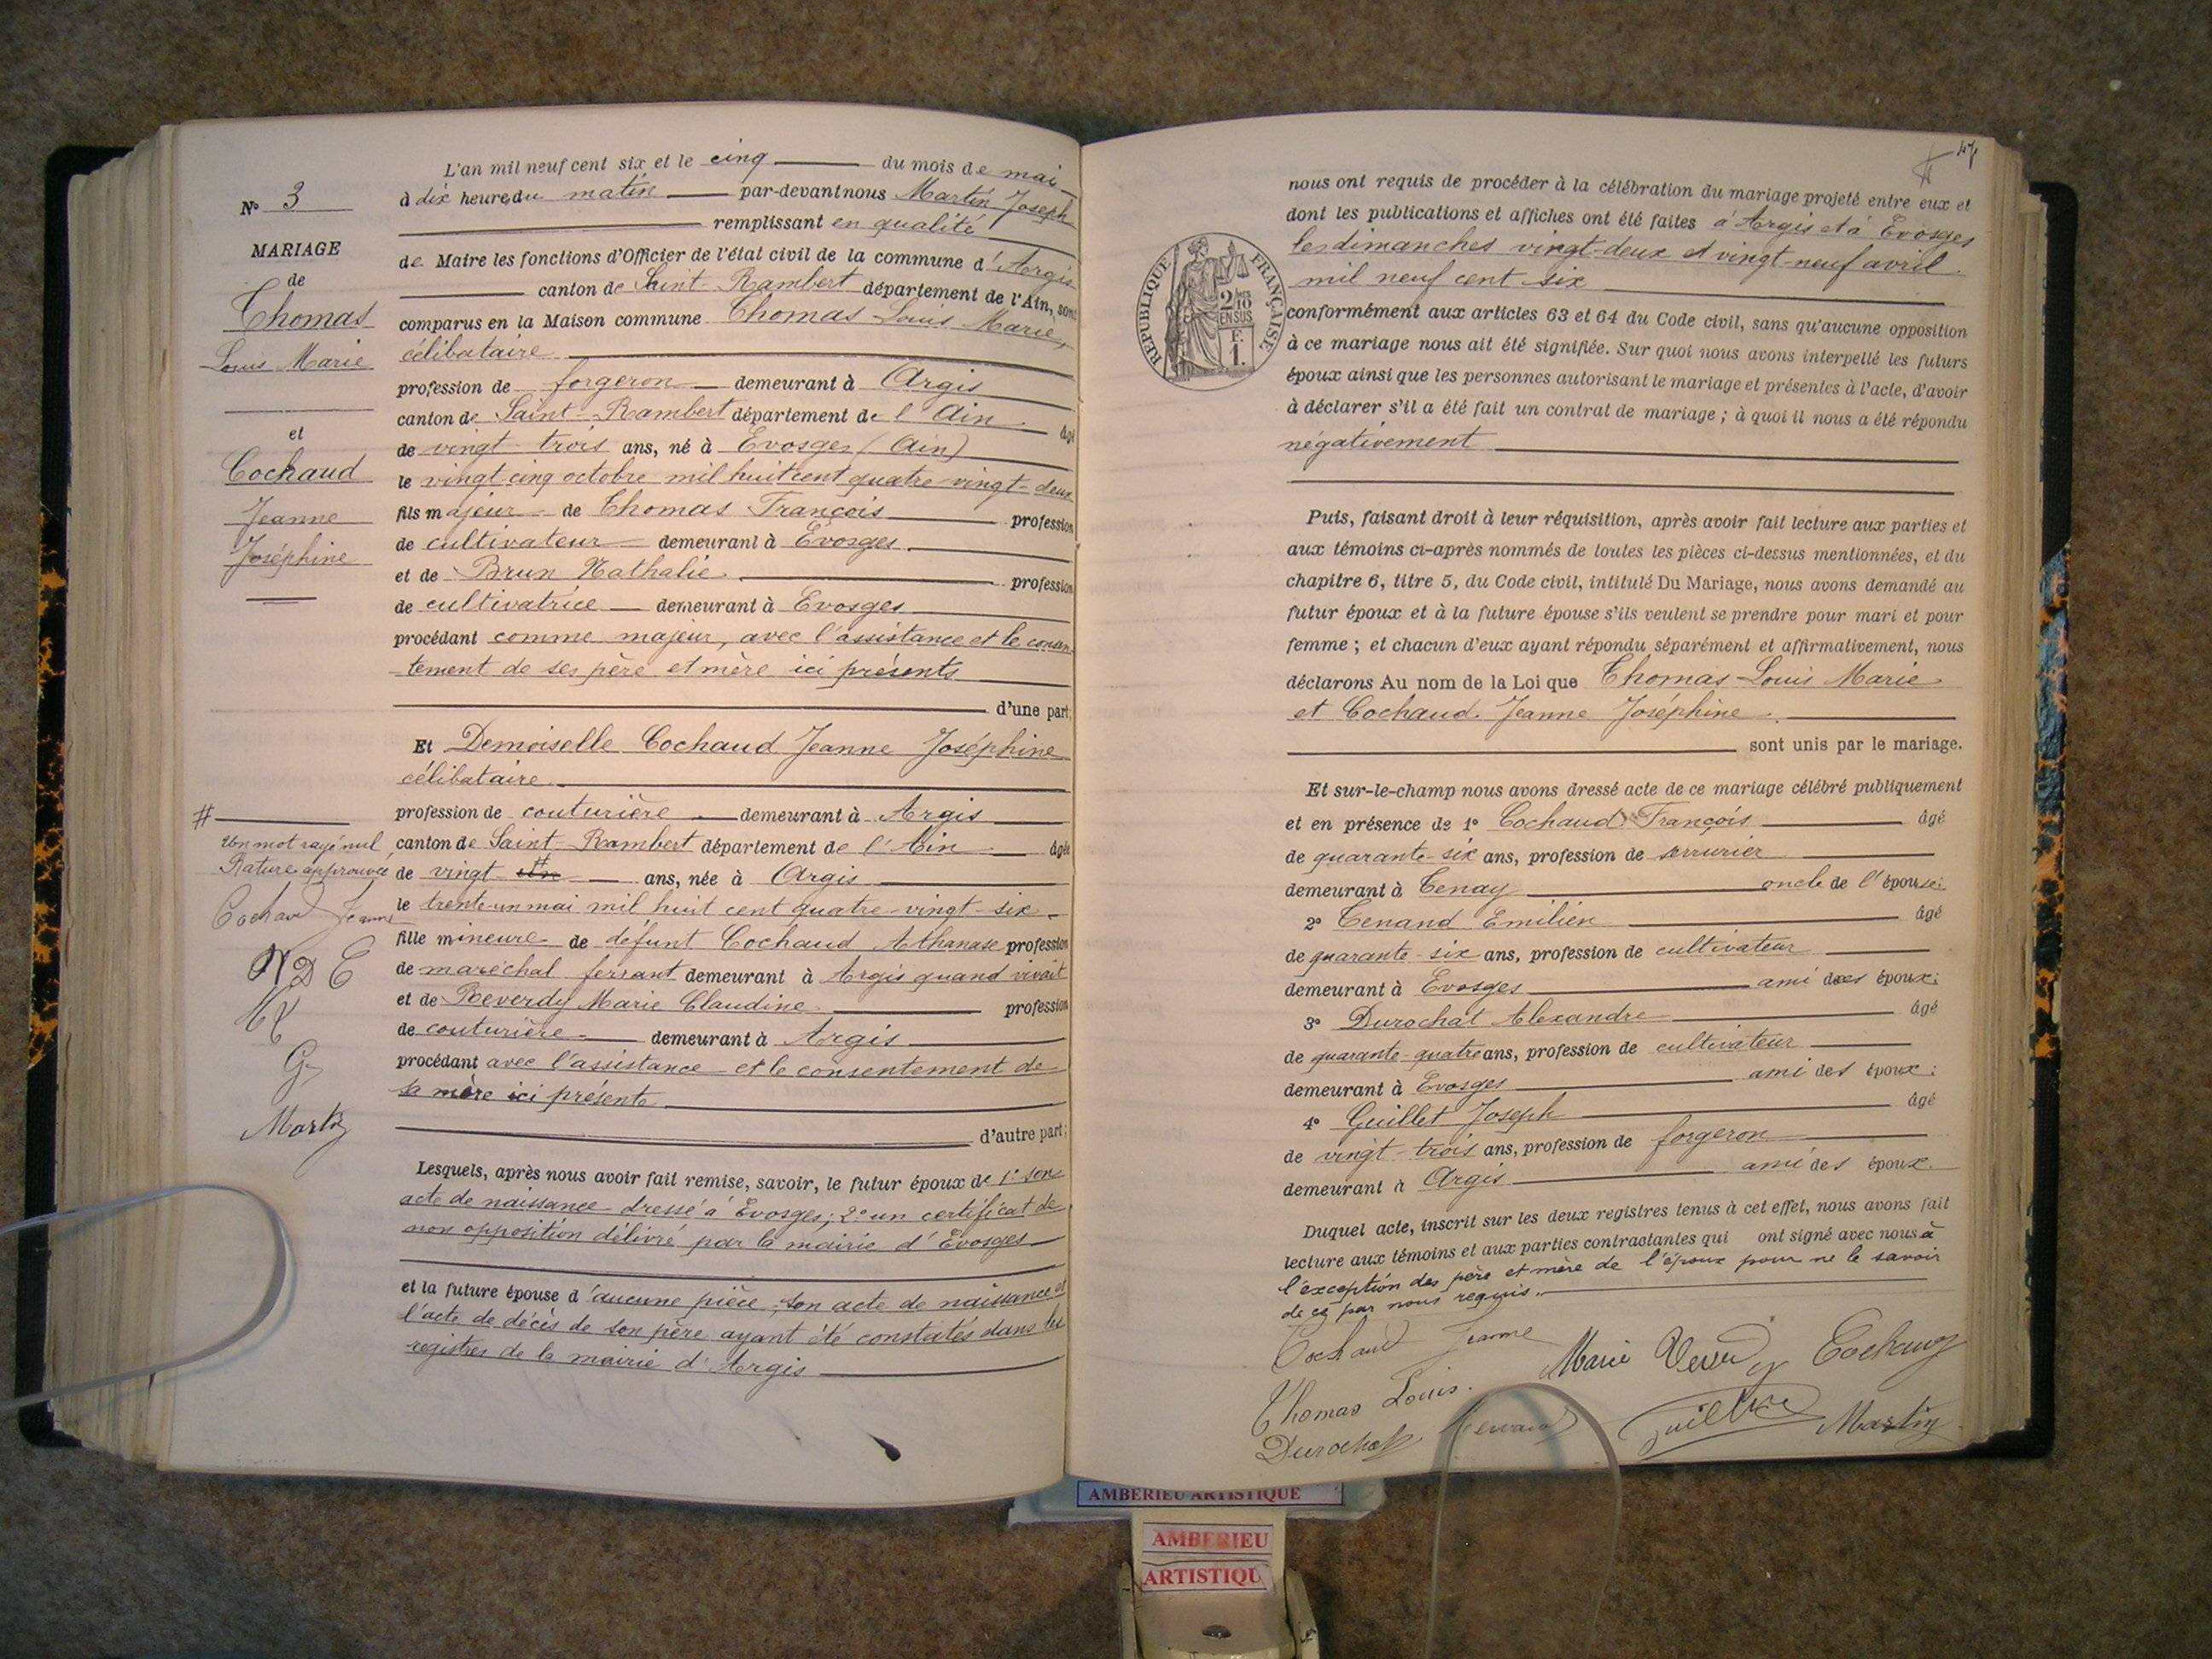 N° 3
MARIAGE
de
Thomas
Louis Marie
et
Cochaud
Jeanne
Joséphine
#
Un mot rayé nul
Rature approuvée
Cochaud Jeanne
Martin
L'an mil neuf cent six et le cinq du mois de mai
à dix heures du matin par-devant nous Martin Joseph
remplissant en qualité
de Maire les fonctions d'Officier de l'état civil de la commune d'Argis
canton de Saint-Rambert département de l'Ain, sont
comparus en la Maison commune Thomas Louis Marie,
célibataire
profession de forgeron demeurant à Argis
canton de Saint-Rambert département de l'Ain âgé
de vingt-trois ans, né à Evosges (Ain)
le vingt-cinq octobre mil huit cent quatre-vingt-deux
fils majeur de Thomas François profession
de cultivateur demeurant à Evosges
et de Brun Nathalie profession
de cultivatrice demeurant à Evosges
procédant comme majeur, avec l'assistance et le consen-
tement de ses père et mère ici présents
d'une part;
Et Demoiselle Cochaud Jeanne Joséphine
célibataire
profession de couturière demeurant à Argis
canton de Saint-Rambert département de l'Ain âgée
de vingt # ans, née à Argis
le trente-un mai mil huit cent quatre-vingt-six
fille mineure de défunt Cochaud Athanase profession
de maréchal ferrant demeurant à Argis quand vivait
et de Reverdy Marie Claudine profession
de couturière demeurant à Argis
procédant avec l'assistance et le consentement de
sa mère ici présente
d'autre part;
Lesquels, après nous avoir fait remise, savoir, le futur époux de 1° son
acte de naissance dressé à Evosges; 2° un certificat de
non opposition délivré par la mairie d'Evosges
et la future épouse d'aucune pièce, son acte de naissance et
l'acte de décès de son père ayant été constatés dans les
registres de la mairie d'Argis
47
nous ont requis de procéder à la célébration du mariage projeté entre eux et
dont les publications et affiches ont été faites à Argis et à Evosges
les dimanches vingt-deux et vingt-neuf avril
mil neuf cent six
RÉPUBLIQUE FRANÇAISE
2/10 EN SUS
F. 1.
conformément aux articles 63 et 64 du Code civil, sans qu'aucune opposition
à ce mariage nous ait été signifiée. Sur quoi nous avons interpellé les futurs
époux ainsi que les personnes autorisant le mariage et présentes à l'acte, d'avoir
à déclarer s'il a été fait un contrat de mariage; à quoi il nous a été répondu
négativement
Puis, faisant droit à leur réquisition, après avoir fait lecture aux parties et
aux témoins ci-après nommés de toutes les pièces ci-dessus mentionnées, et du
chapitre 6, titre 5, du Code civil, intitulé Du Mariage, nous avons demandé au
futur époux et à la future épouse s'ils veulent se prendre pour mari et pour
femme; et chacun d'eux ayant répondu séparément et affirmativement, nous
déclarons Au nom de la Loi que Thomas Louis Marie
et Cochaud Jeanne Joséphine
sont unis par le mariage.
Et sur-le-champ nous avons dressé acte de ce mariage célébré publiquement
et en présence de 1° Cochaud François âgé
de quarante-six ans, profession de serrurier
demeurant à Tenay oncle de l'épouse;
2° Tenand Emilien âgé
de quarante-six ans, profession de cultivateur
demeurant à Evosges ami des époux;
3° Durochat Alexandre âgé
de quarante-quatre ans, profession de cultivateur
demeurant à Evosges ami des époux;
4° Guillet Joseph âgé
de vingt-trois ans, profession de forgeron
demeurant à Argis ami des époux.
Duquel acte, inscrit sur les deux registres tenus à cet effet, nous avons fait
lecture aux témoins et aux parties contractantes qui ont signé avec nous à
l'exception des père et mère de l'époux pour ne le savoir
de ce par nous requis.
Cochaud Jeanne Marie Cochaud
Thomas Louis
Durochat Martin
AMBERIEU ARTISTIQUE
AMBERIEU
ARTISTIQU